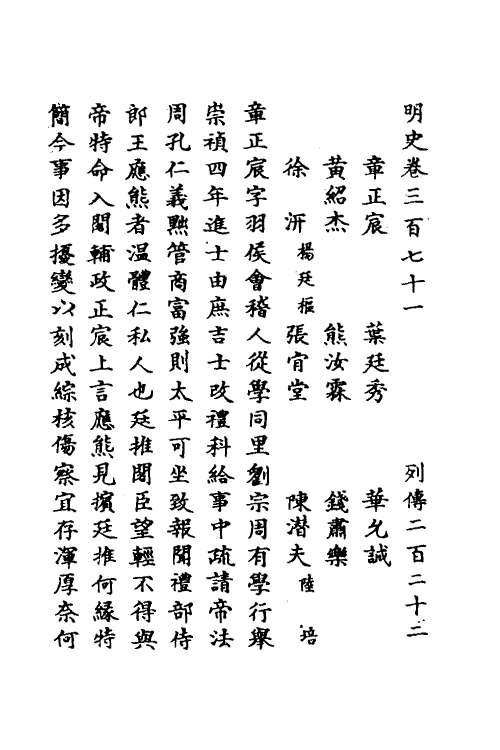 明史卷三百七十一　列傳二百二十二
章正宸　葉廷秀　華允誠
黃紹杰　熊汝霖　錢肅樂
徐　汧楊廷樞　張肎堂　陳潛夫陸培
章正宸字羽侯會稽人從學同里劉宗周有學行舉
崇禎四年進士由庶吉士改禮科給事中疏請帝法
周孔仁義黜管商富強則太平可坐致報聞禮部侍
郎王應熊者溫體仁私人也廷推閣臣望輕不得與
帝特命入閣輔政正宸上言應熊見擯廷推何緣特
簡今事因多擾變以刻成綜核傷察宜存渾厚奈何